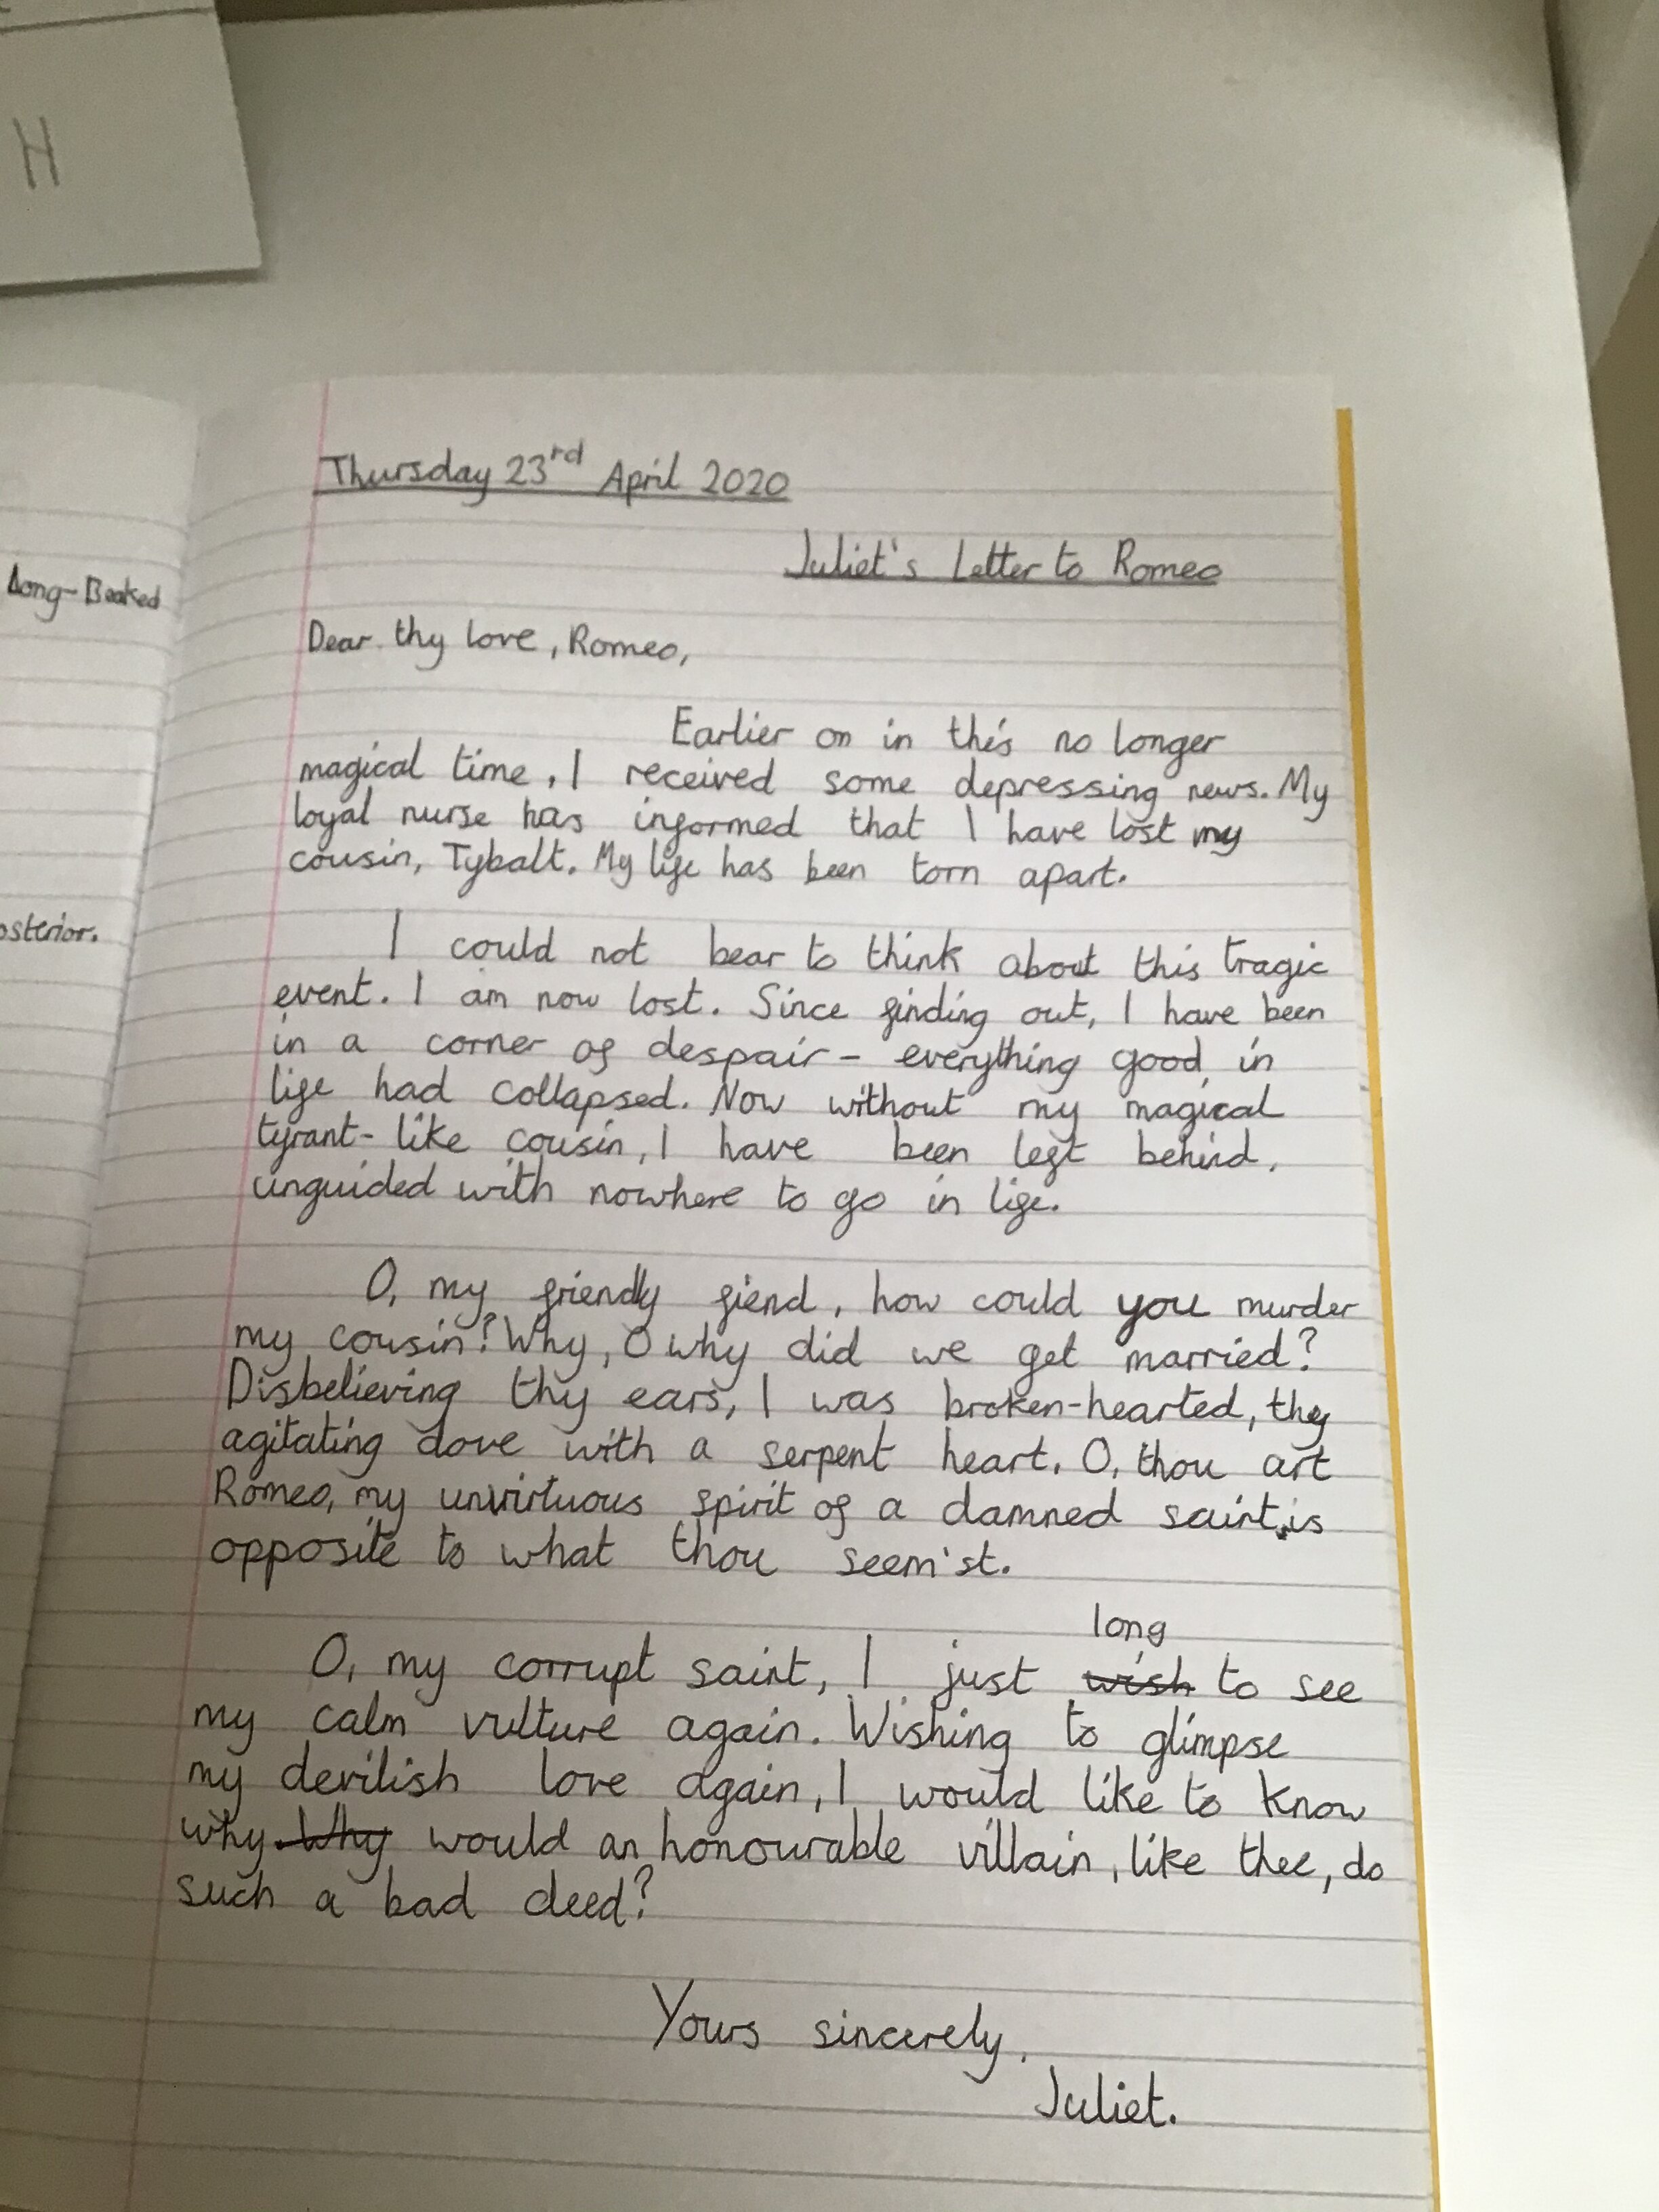 H
Long-Beaked
osterior.
Thursday 23rd April 2020
Juliet's Letter to Romeo
Dear thy love, Romeo,
Earlier on in this no longer
magical time, I received some depressing news. My
loyal nurse has informed that I have lost my
cousin, Tybalt. My life has been torn apart.
I could not bear to think about this tragic
event. I am now lost. Since finding out, I have been
in a corner of despair - everything good in
life had collapsed. Now without my magical
tyrant-like cousin, I have been left behind,
unguided with nowhere to go in life.
O, my friendly fiend, how could you murder
my cousin? Why, O why did we get married?
Disbelieving thy ears, I was broken-hearted, thy
agitating dove with a serpent heart. O, thou art
Romeo, my unvirtuous spirit of a damned saint, is
opposite to what thou seem'st.
long
O, my corrupt saint, I just wish to see
my calm vulture again. Wishing to glimpse
my devilish love again, I would like to know
why Why would an honourable villain, like thee, do
such a bad deed?
Yours sincerely,
Juliet.